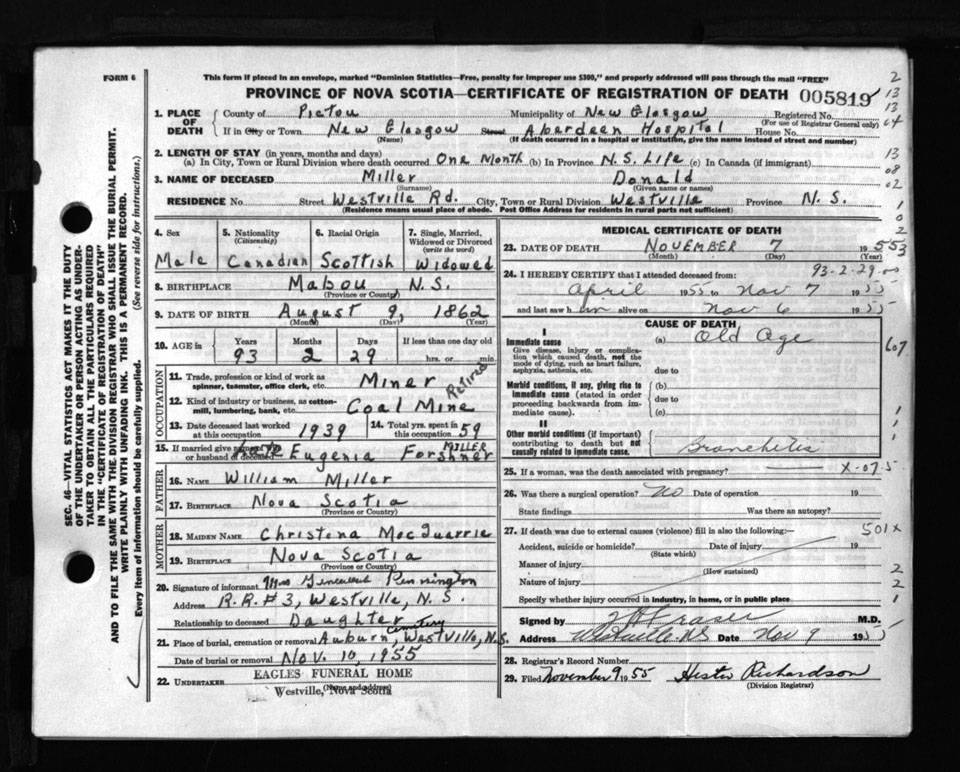 FORM 6
This form if placed in an envelope, marked "Dominion Statistics—Free, penalty for improper use $300," and properly addressed will pass through the mail "FREE"
PROVINCE OF NOVA SCOTIA—CERTIFICATE OF REGISTRATION OF DEATH 005819
1. PLACE OF DEATH
County of Pictou Municipality of New Glasgow Registered No.
(For use of Registrar General only)
If in City or Town New Glasgow Street Aberdeen Hospital House No.
(Name) (If death occurred in a hospital or institution, give the name instead of street and number)
2. LENGTH OF STAY (in years, months and days)
(a) In City, Town or Rural Division where death occurred One Month (b) In Province N.S. Life (c) In Canada (if immigrant)
3. NAME OF DECEASED Miller Donald
(Surname) (Given name or names)
RESIDENCE No. Street Westville Rd. City, Town or Rural Division Westville Province N.S.
(Residence means usual place of abode. Post Office Address for residents in rural parts not sufficient)
4. Sex 5. Nationality (Citizenship) 6. Racial Origin 7. Single, Married, Widowed or Divorced (write the word)
Male Canadian Scottish Widowed
8. BIRTHPLACE Mabou N.S.
(Province or Country)
9. DATE OF BIRTH August 9, 1862
(Month) (Day) (Year)
10. AGE in Years Months Days If less than one day old
93 2 29 hrs. or min.
OCCUPATION
11. Trade, profession or kind of work as spinner, teamster, office clerk, etc. Miner Retired
12. Kind of industry or business, as cotton-mill, lumbering, bank, etc. Coal Mine
13. Date deceased last worked at this occupation 1939 14. Total yrs. spent in this occupation 59
15. If married give name of wife or husband of deceased Eugenia Forshner MILLER
FATHER
16. NAME William Miller
17. BIRTHPLACE Nova Scotia
(Province or Country)
MOTHER
18. MAIDEN NAME Christena MacQuarrie
19. BIRTHPLACE Nova Scotia
(Province or Country)
20. Signature of informant Mrs Pennington
Address R.R.#3, Westville, N.S.
Relationship to deceased Daughter
21. Place of burial, cremation or removal Auburn Cemetery, Westville, N.S.
Date of burial or removal Nov. 10, 1955
22. UNDERTAKER EAGLES FUNERAL HOME
(Name and Address)
Westville, Nova Scotia
MEDICAL CERTIFICATE OF DEATH
23. DATE OF DEATH November 7 1955
(Month) (Day)
93-2-29
24. I HEREBY CERTIFY that I attended deceased from:
April 1955 to Nov 7 1955
and last saw him alive on Nov 6 1955
CAUSE OF DEATH
I
Immediate cause (a) Old Age
Give disease, injury or complication which caused death, not the mode of dying, such as heart failure, asphyxia, asthenia, etc.
due to
Morbid conditions, if any, giving rise to immediate cause (stated in order proceeding backwards from immediate cause).
(b)
due to
(c)
II
Other morbid conditions (if important) contributing to death but not causally related to immediate cause.
Bronchetis
25. If a woman, was the death associated with pregnancy? X-07-5
26. Was there a surgical operation? No Date of operation 19
State findings Was there an autopsy?
27. If death was due to external causes (violence) fill in also the following:—
Accident, suicide or homicide? Date of injury 19
(State which)
Manner of injury
(How sustained)
Nature of injury
Specify whether injury occurred in industry, in home, or in public place
Signed by J H Fraser M.D.
Address Westville N.S. Date Nov 9 1955
28. Registrar's Record Number
29. Filed November 9 1955 Hester Richardson
(Division Registrar)
2
13
13
64
13
08
02
1
0
2
3
607
1
1
501x
2
2
1
SEC. 46—VITAL STATISTICS ACT MAKES IT THE DUTY
OF THE UNDERTAKER OR PERSON ACTING AS UNDER-
TAKER TO OBTAIN ALL THE PARTICULARS REQUIRED
IN THE "CERTIFICATE OF REGISTRATION OF DEATH"
AND TO FILE THE SAME WITH THE DIVISION REGISTRAR WHO SHALL ISSUE THE BURIAL PERMIT.
WRITE PLAINLY WITH UNFADING INK. THIS IS A PERMANENT RECORD.
Every item of information should be carefully supplied. (See reverse side for instructions.)